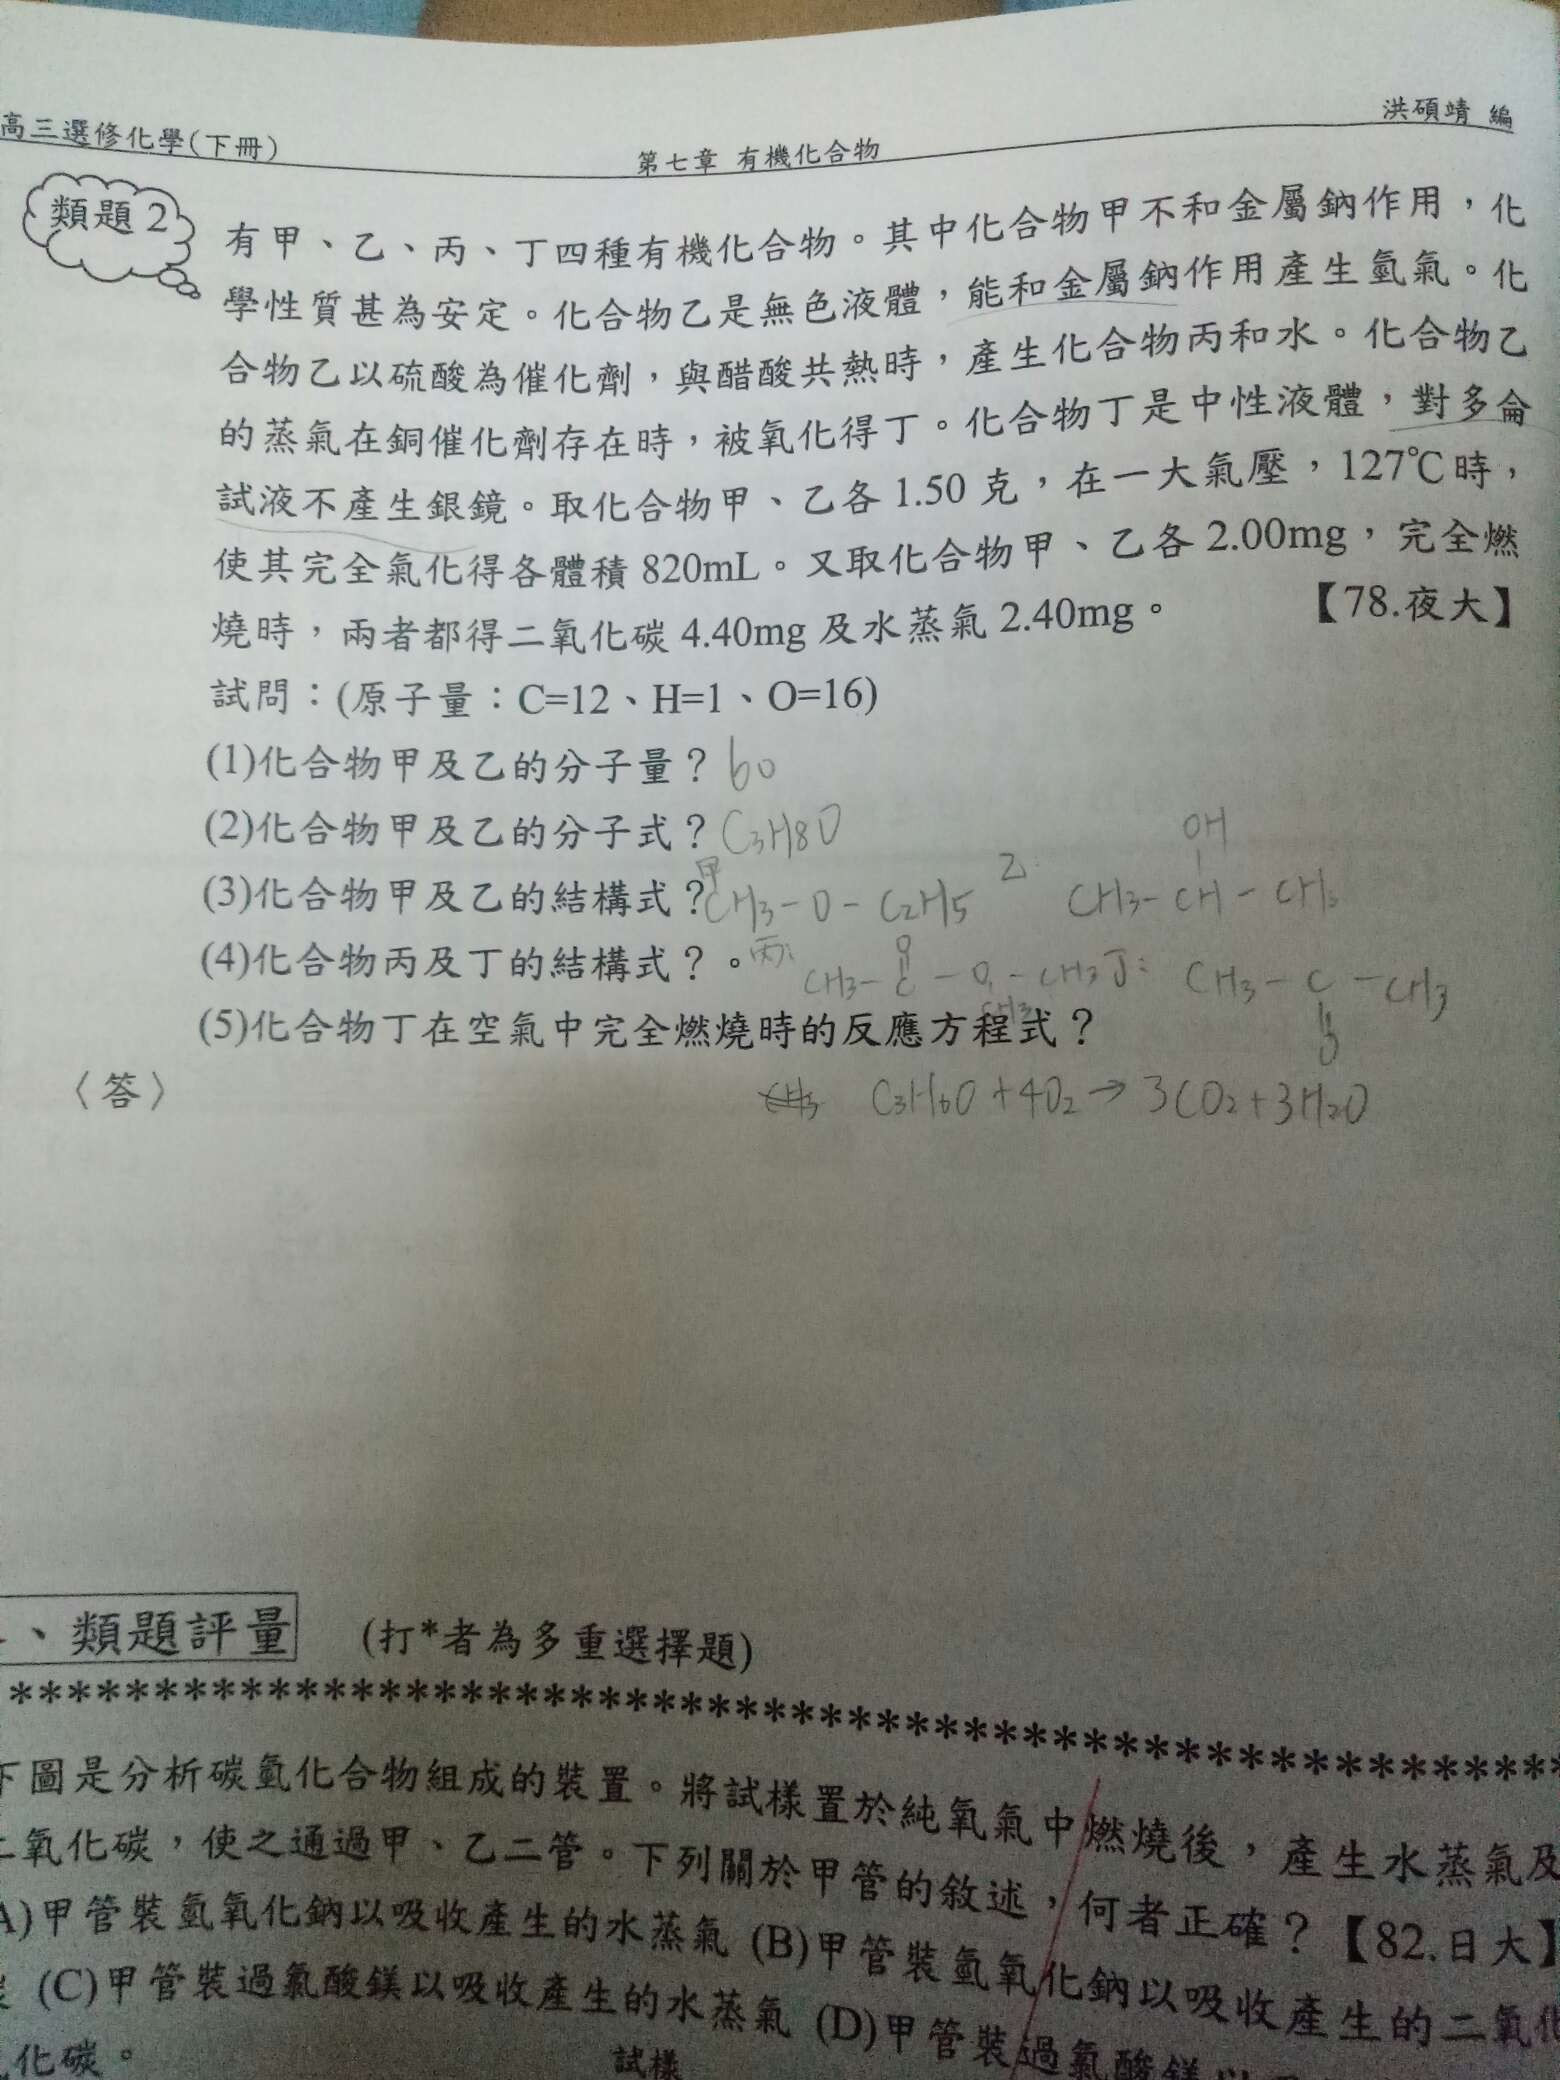 高三選修化學(下冊)
第七章 有機化合物
洪碩靖 編
類題2
有甲、乙、丙、丁四種有機化合物。其中化合物甲不和金屬鈉作用，化
學性質甚為安定。化合物乙是無色液體，能和金屬鈉作用產生氫氣。化
合物乙以硫酸為催化劑，與醋酸共熱時，產生化合物丙和水。化合物乙
的蒸氣在銅催化劑存在時，被氧化得丁。化合物丁是中性液體，對多侖
試液不產生銀鏡。取化合物甲、乙各1.50克，在一大氣壓，127℃時，
使其完全氣化得各體積820mL。又取化合物甲、乙各2.00mg，完全燃
燒時，兩者都得二氧化碳4.40mg及水蒸氣2.40mg。
【78.夜大】
試問：(原子量：C=12、H=1、O=16)
(1)化合物甲及乙的分子量？ 60
(2)化合物甲及乙的分子式？ C3H8O
OH
(3)化合物甲及乙的結構式？ 甲 CH3-O-C2H5 乙: CH3-CH-CH3
O
(4)化合物丙及丁的結構式？。丙: CH3-C-O-CH3 丁: CH3-C-CH3
CH3
O
(5)化合物丁在空氣中完全燃燒時的反應方程式？
〈答〉
CH3 C3H6O+4O2→3CO2+3H2O
、類題評量 (打*者為多重選擇題)
*******************************************************
下圖是分析碳氫化合物組成的裝置。將試樣置於純氧氣中燃燒後，產生水蒸氣及
二氧化碳，使之通過甲、乙二管。下列關於甲管的敘述，何者正確？【82.日大】
A)甲管裝氫氧化鈉以吸收產生的水蒸氣 (B)甲管裝氫氧化鈉以吸收產生的二氧化
(C)甲管裝過氯酸鎂以吸收產生的水蒸氣 (D)甲管裝過氯酸鎂以
化碳。
試樣